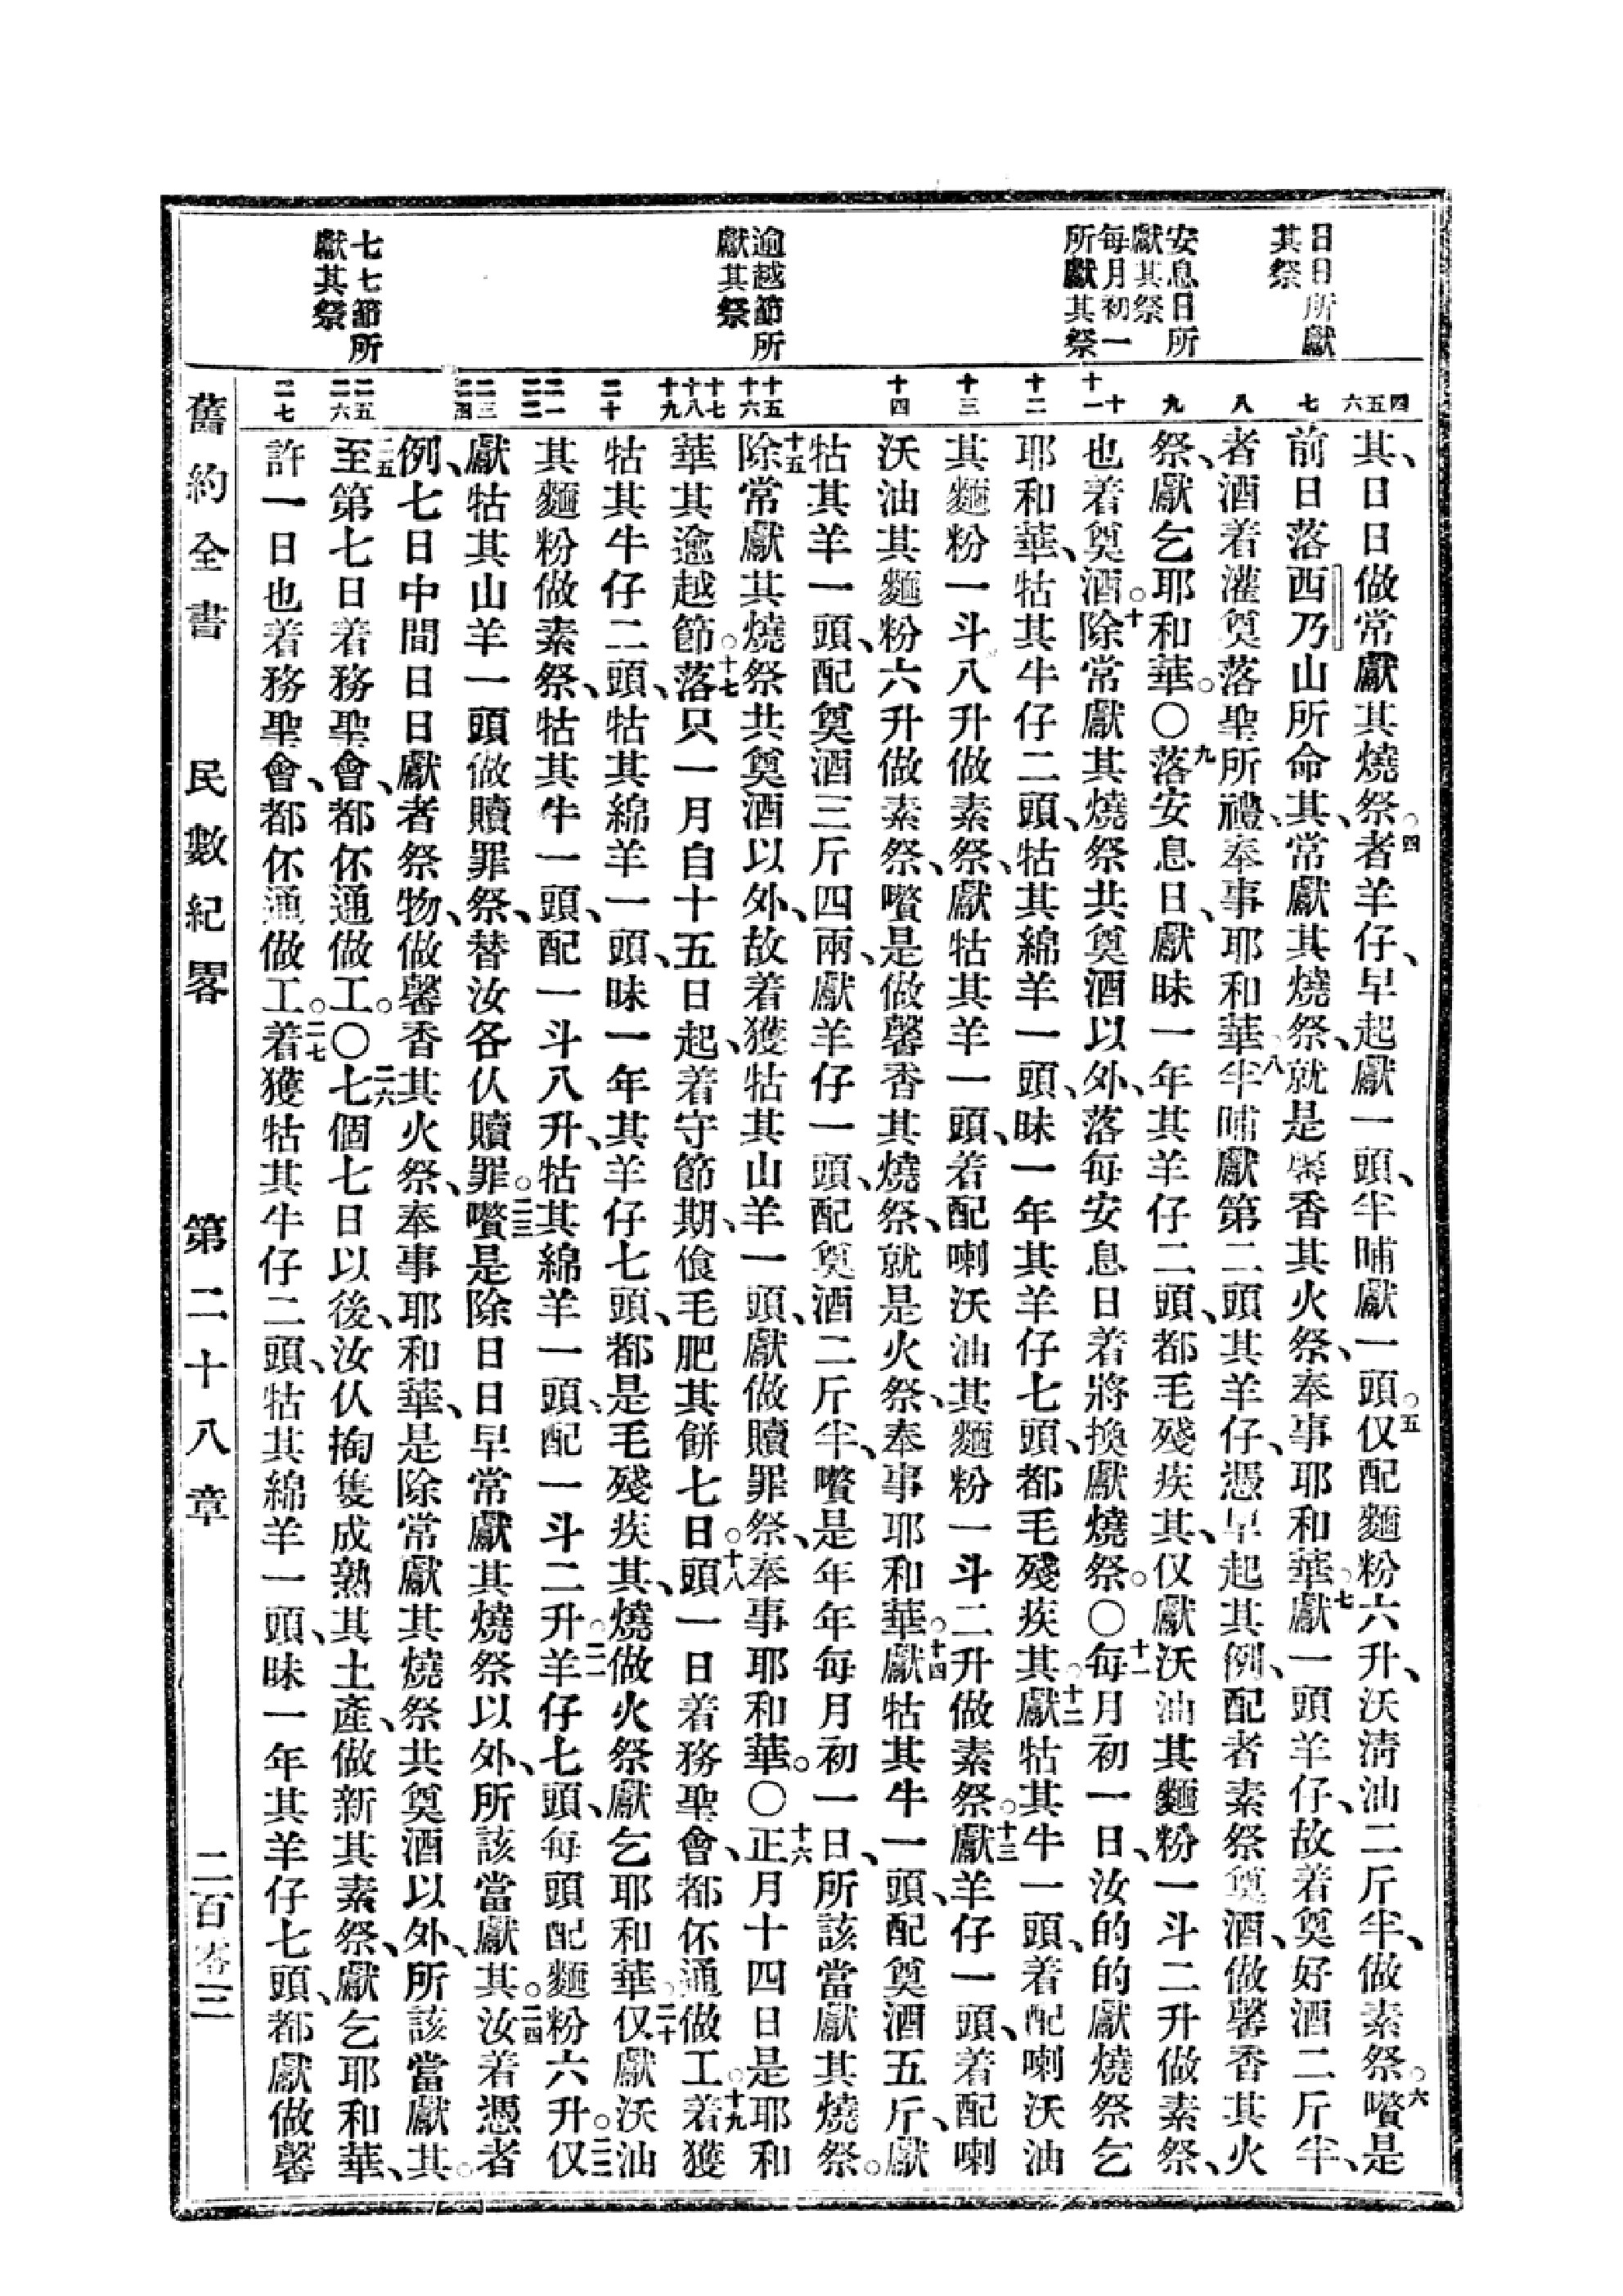 日日所獻
其祭
安息日所
獻其祭
每月初一
所獻其祭
逾越節所
獻其祭
七七節所
獻其祭
四五六
七
八
九
十十一
十二
十三
十四
十五十六
十七十八十九
二十
二一二二
二三二四
二五二六
二七
其、日日做常獻其燒祭。四者羊仔、早起獻一頭、半晡獻一頭。五仅配麵粉六升、沃淸油二斤半、做素祭。六嚽是
前日落西乃山所命其、常獻其燒祭、就是馨香其火祭、奉事耶和華。七獻一頭羊仔、故着奠好酒二斤半、
者酒着灌奠落聖所禮、奉事耶和華。八半晡獻第二頭其羊仔、憑早起其例、配者素祭奠酒、做馨香其火
祭、獻乞耶和華。〇九落安息日、獻昧一年其羊仔二頭、都毛殘疾其、仅獻沃油其麵粉一斗二升做素祭、
也着奠酒。十除常獻其燒祭共奠酒以外、落每安息日着將換獻燒祭。〇十一每月初一日、汝的的獻燒祭乞
耶和華、牯其牛仔二頭、牯其綿羊一頭、昧一年其羊仔七頭、都毛殘疾其。十二獻牯其牛一頭、着配喇沃油
其麵粉一斗八升做素祭、獻牯其羊一頭、着配喇沃油其麵粉一斗二升做素祭。十三獻羊仔一頭、着配喇
沃油其麵粉六升做素祭、嚽是做馨香其燒祭、就是火祭、奉事耶和華。十四獻牯其牛一頭、配奠酒五斤、獻
牯其羊一頭、配奠酒三斤四兩、獻羊仔一頭、配奠酒二斤半、嚽是年年每月初一日、所該當獻其燒祭。
十五除常獻其燒祭共奠酒以外、故着獲牯其山羊一頭、獻做贖罪祭、奉事耶和華。〇十六正月十四日是耶和
華其逾越節。十七落只一月自十五日起、着守節期、飡毛肥其餅七日。十八頭一日着務聖會、都伓通做工。十九着獲
牯其牛仔二頭、牯其綿羊一頭、昧一年其羊仔七頭、都是毛殘疾其、燒做火祭獻乞耶和華。二十仅獻沃油
其麵粉做素祭、牯其牛一頭、配一斗八升、牯其綿羊一頭、配一斗二升。二一羊仔七頭、每頭配麵粉六升。二二仅
獻牯其山羊一頭做贖罪祭、替汝各仈贖罪。二三嚽是除日日早常獻其燒祭以外、所該當獻其。二四汝着憑者
例、七日中間日日獻者祭物、做馨香其火祭、奉事耶和華、是除常獻其燒祭共奠酒以外、所該當獻其。
二五至第七日着務聖會、都伓通做工。〇二六七個七日以後、汝仈掏隻成熟其土產、做新其素祭、獻乞耶和華、
許一日也着務聖會、都伓通做工。二七着獲牯其牛仔二頭、牯其綿羊一頭、昧一年其羊仔七頭、都獻做馨
舊約全書 民數紀畧 第二十八章 二百零三